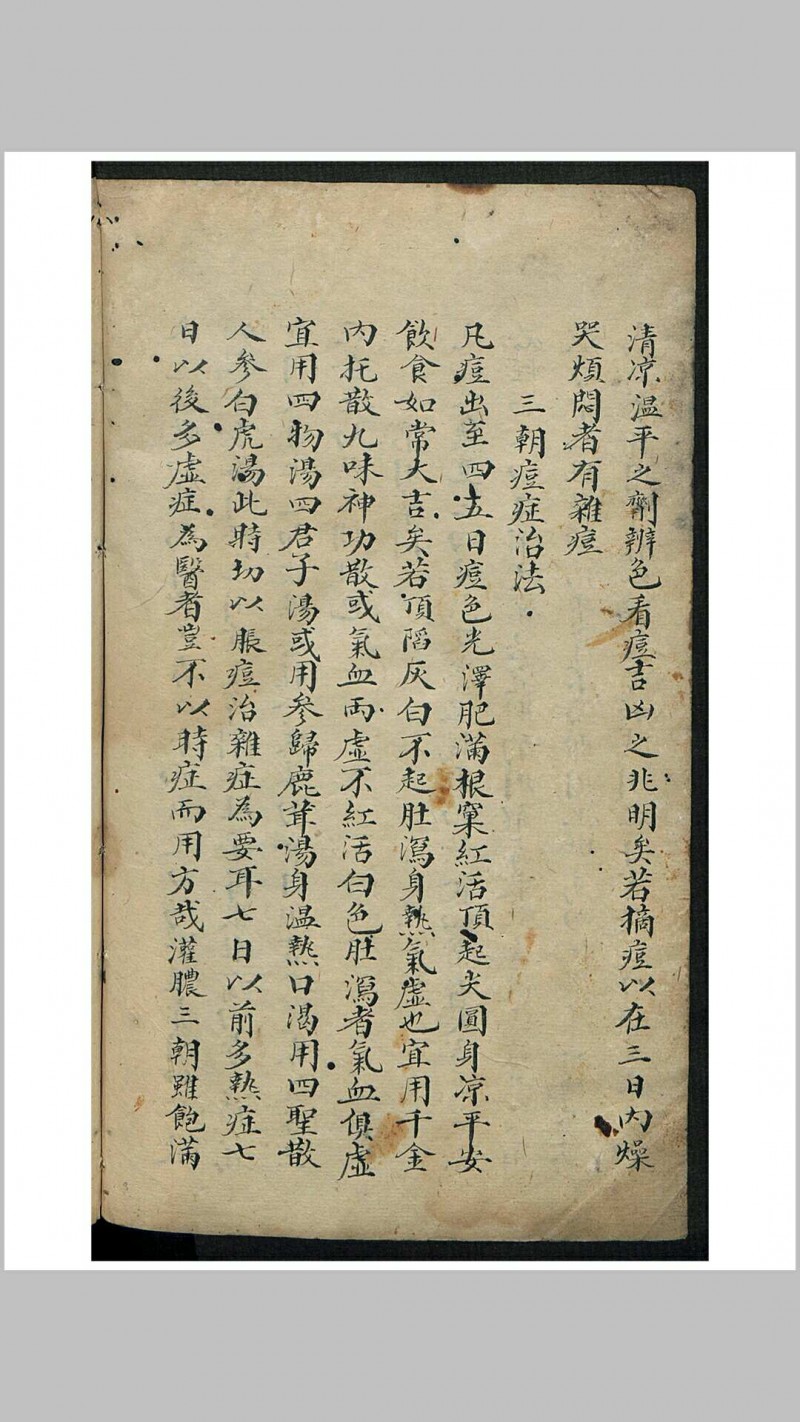 清凉温平之劑辨色看痘吉凶之兆明矣若摘痘以在三日內燥
哭煩悶者有雜痘
三朝痘症治法
凡痘出至四五日痘色光澤肥滿根窠紅活頂起尖圓身凉平安
飲食如常大吉矣若頂陷灰白不起肚瀉身熱氣虛也宜用千金
內托散九味神功散或氣血两虛不紅活白色肚瀉者氣血俱虛
宜用四物湯四君子湯或用參歸鹿茸湯身温熱口渴用四聖散
人參白虎湯此時切以脹痘治雜症為要耳七日以前多熱症七
日以後多虛症為醫者豈不以時症而用方哉灌膿三朝雖飽滿